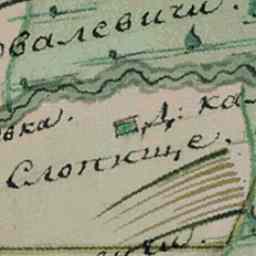 овалевичи.
овка.
Д: ка
Слопище.
ичи.